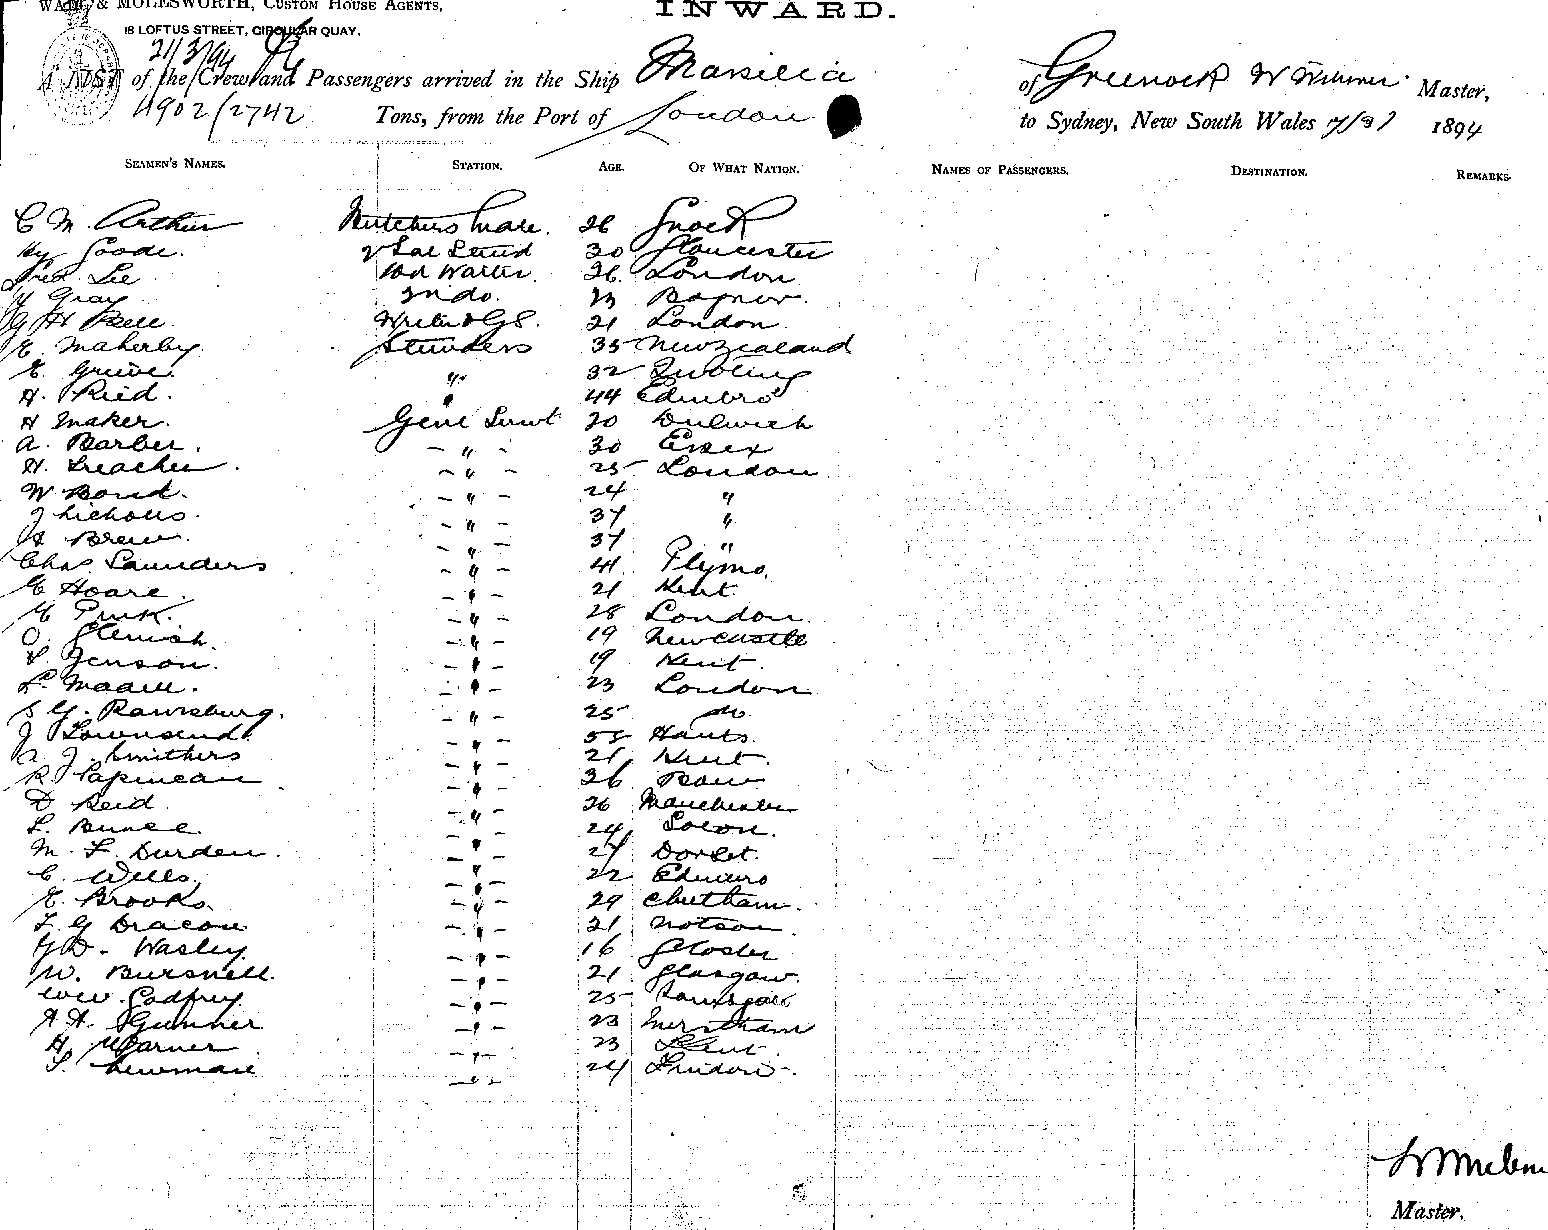 WADE & MOLESWORTH, CUSTOM HOUSE AGENTS,
INWARD.
18 LOFTUS STREET, CIRCULAR QUAY.
21/3/94
A LIST of the Crew and Passengers arrived in the Ship Massilia of Greenock W Master,
4902/2742 Tons, from the Port of London to Sydney, New South Wales 1894
SEAMEN'S NAMES. STATION. AGE. OF WHAT NATION. NAMES OF PASSENGERS. DESTINATION. REMARKS.
C M. Arthur Butchers Mate. 26 Gnock
Hy Goode. 2 Sal 30 Gloucester
Fred Lee 26 London
Gray do. 23 Bognor.
G H 21 London
E. Maherby. Stewdess 35 New Zealand
E. Grieve. " 32
H. Reid. " 44 Edinbro
H Maker. Genl Servt 20 Dulwich
A. Barber. - " - 30 Essex
H. Treacher. - " - 25 London
W Bond. - " - 24 "
J Nicholls. - " - 37 "
Brew. - " - 37 "
Chas Saunders - " - 41 Plymo.
E Hoare. - " - 21 Kent.
E Pink. - " - 28 London
O. Glenish. - " - 19 Newcastle
Jenson. - " - 19 Kent.
- " - 23 London
S G. Ramsburg. - " - 25 do.
J Townsend. - " - 55 Hants.
A. J. Smithers - " - 21 Kent.
R. Papineau - " - 36 Bow
D Reid - " - 26 Manchester
- " - 24
M. F. Durden. - " - 27 Dorset.
C. Wells. - " - 22 Edinbro
E. Brooks. - " - 29 Chetham.
F. G Deacon - " - 21
D. Wasley. - " - 16 Gloster
W. Bursnell. - " - 21 Glasgow.
Wm. Godfrey. - " - 25 Ramsgate
A A. Gunner - " - 23 Merstham
H. Warner - " - 23 Kent.
S. Newman - " - 24 London.
Master.